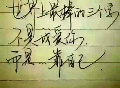 世界上最棒的三个字
不是我爱你,
而是 靠自己